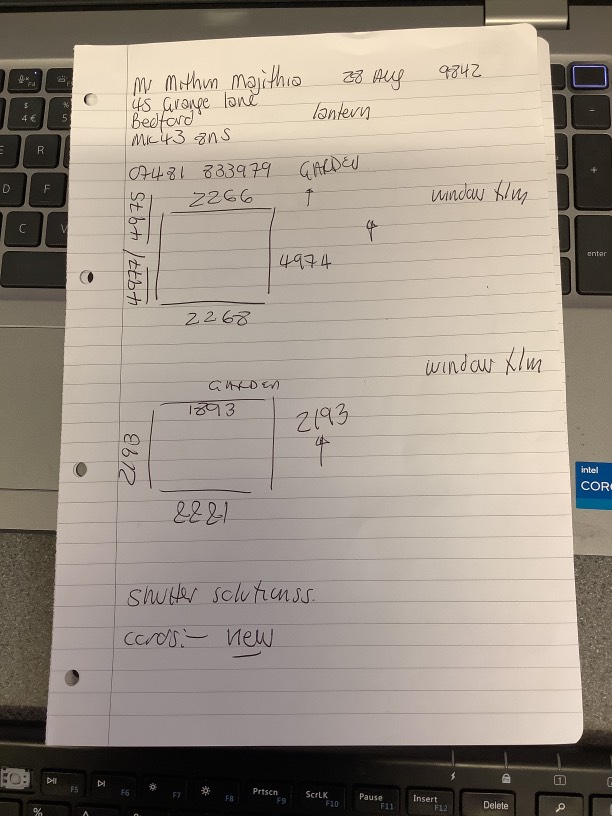 Mr Mithun Majithia 28 Aug 9842
45 Grange lane
Bedford lantern
MK43 8NS
07481 833979 GARDEN
2266 window f/m
4977/ 4975
4974
2268
window f/m
GARDEN
1893 2193
2198
2221
shutter solutionss.
cards:- new
intel
CORE
R
D F
C V
$
4 €
%
5
+
-
enter
F5 F6 F7 F8 Prtscn F9 ScrLK F10 Pause F11 Insert F12 Delete
%